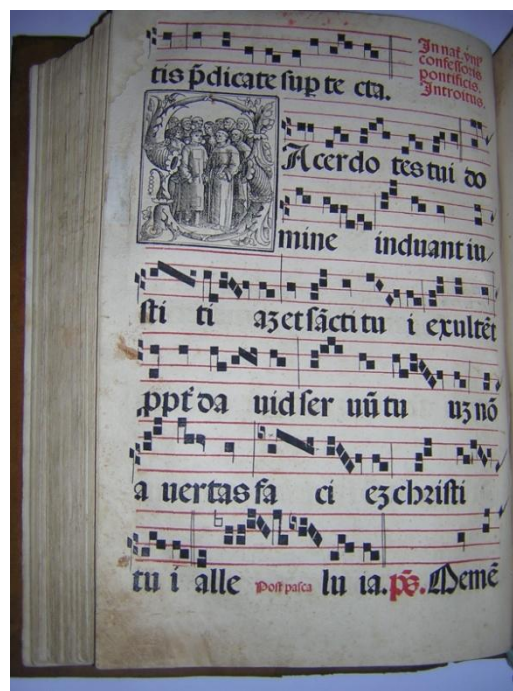 tis p̄dicate sup te cta.
In nat. vniꝰ
confessoris
pontificis.
Introitus.
SAcerdo tes tui do
mine induant iu
sti ti aꝫ et sācti tu i exultēt
ppt̄ da uid ser uū tu uꝫ nō
a uertas fa ci eꝫ christi
tu i alle Post pasca lu ia. p̄s. Memē